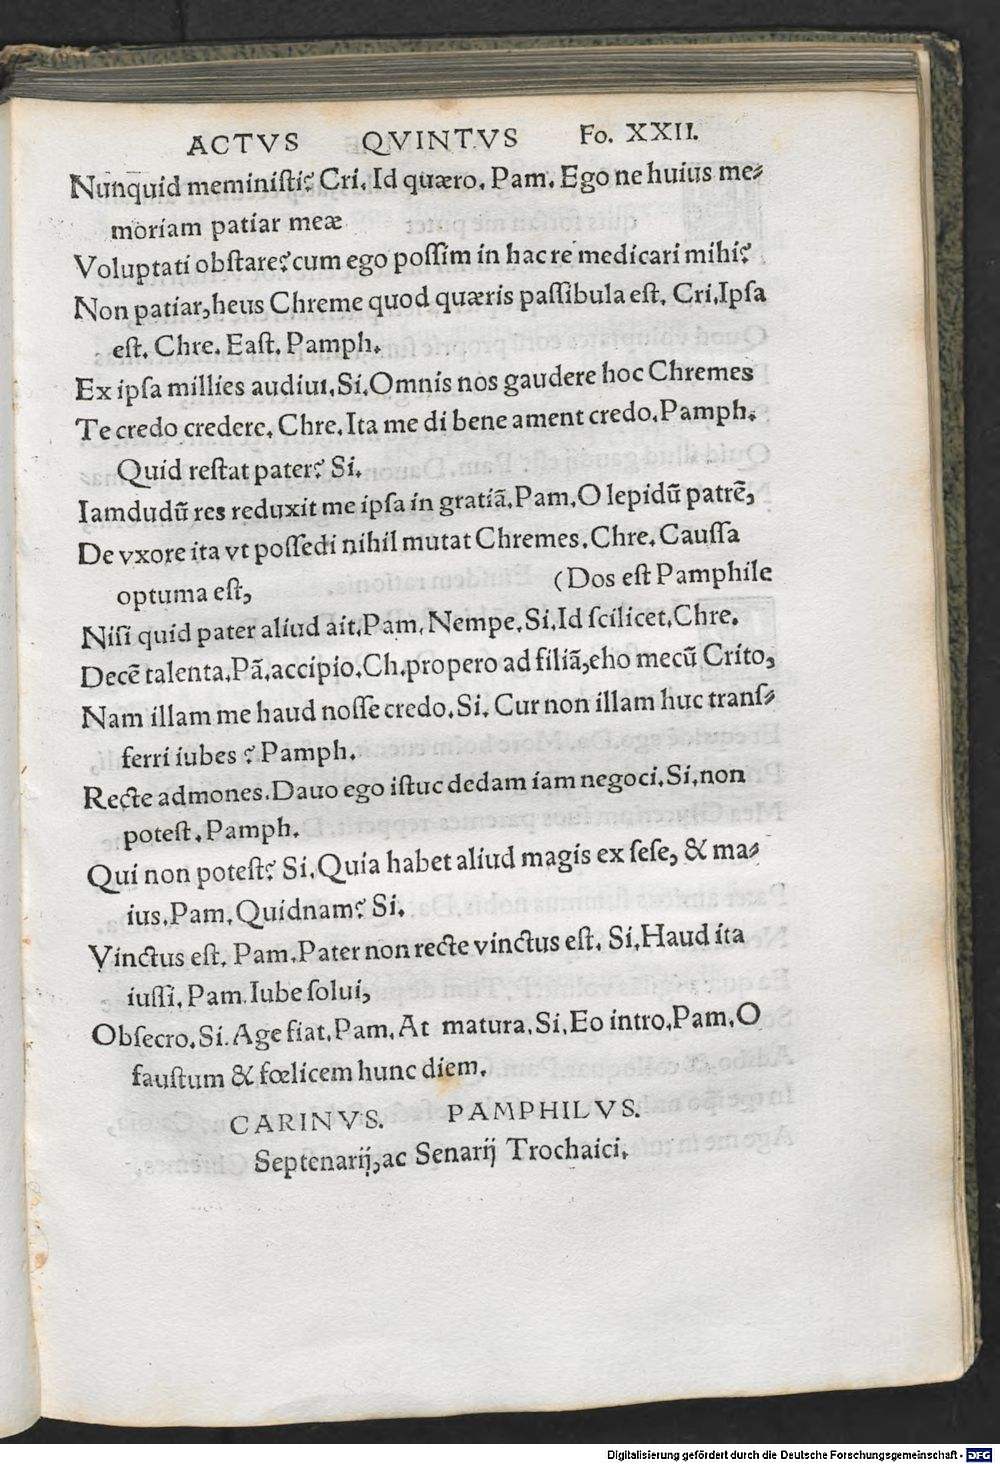 ACTVS QVINTVS Fo. XXII.
Nunquid meministi? Cri. Id quæro. Pam. Ego ne huius me-
moriam patiar meæ
Voluptati obstare? cum ego possim in hac re medicari mihi?
Non patiar, heus Chreme quod quæris passibula est. Cri. Ipsa
est. Chre. East. Pamph.
Ex ipsa millies audiui. Si. Omnis nos gaudere hoc Chremes
Te credo credere. Chre. Ita me di bene ament credo. Pamph.
Quid restat pater? Si.
Iamdudũ res reduxit me ipsa in gratiã. Pam. O lepidũ patrẽ,
De vxore ita vt possedi nihil mutat Chremes. Chre. Caussa
optuma est, (Dos est Pamphile
Nisi quid pater aliud ait. Pam. Nempe. Si. Id scilicet. Chre.
Decẽ talenta. Pã. accipio. Ch. propero ad filiã, eho mecũ Crito,
Nam illam me haud nosse credo. Si. Cur non illam huc trans-
ferri iubes ? Pamph.
Recte admones. Dauo ego istuc dedam iam negoci. Si. non
potest. Pamph.
Qui non potest? Si. Quia habet aliud magis ex sese, & ma-
ius. Pam. Quidnam? Si.
Vinctus est. Pam. Pater non recte vinctus est. Si. Haud ita
iussi. Pam. Iube solui,
Obsecro. Si. Age fiat. Pam. At matura. Si. Eo intro. Pam. O
faustum & fœlicem hunc diem.
CARINVS. PAMPHILVS.
Septenarij, ac Senarij Trochaici.
Digitalisierung gefördert durch die Deutsche Forschungsgemeinschaft - DFG